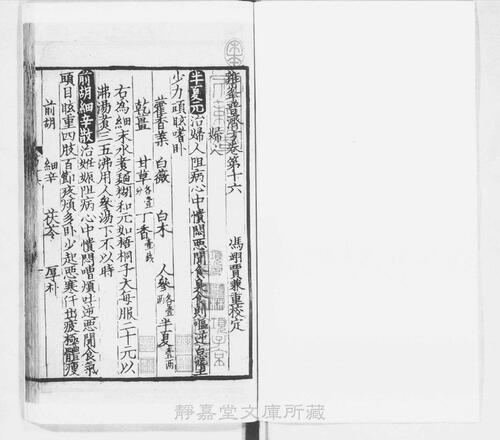 雞峯普濟方卷第十六
馮翊賈兼重校定
婦人
半夏元治婦人阻病心中憒悶惡聞食臭食則嘔逆
少力頭眩嗜卧
藿香葉 白薇 白术 人參各壹兩 半夏壹兩
乾薑 甘草各壹分 丁香壹錢
右為細末水煮麵糊和元如梧桐子大每服二十元以
沸湯煮三五沸用人參湯下不以時
前胡細辛散治妊娠阻病心中憒悶嘈煩吐逆惡聞食氣
頭目眩重四肢百節疼煩多卧少起惡寒汗出疲極體瘦
前胡 細辛 茯苓 厚朴
靜嘉堂文庫所藏